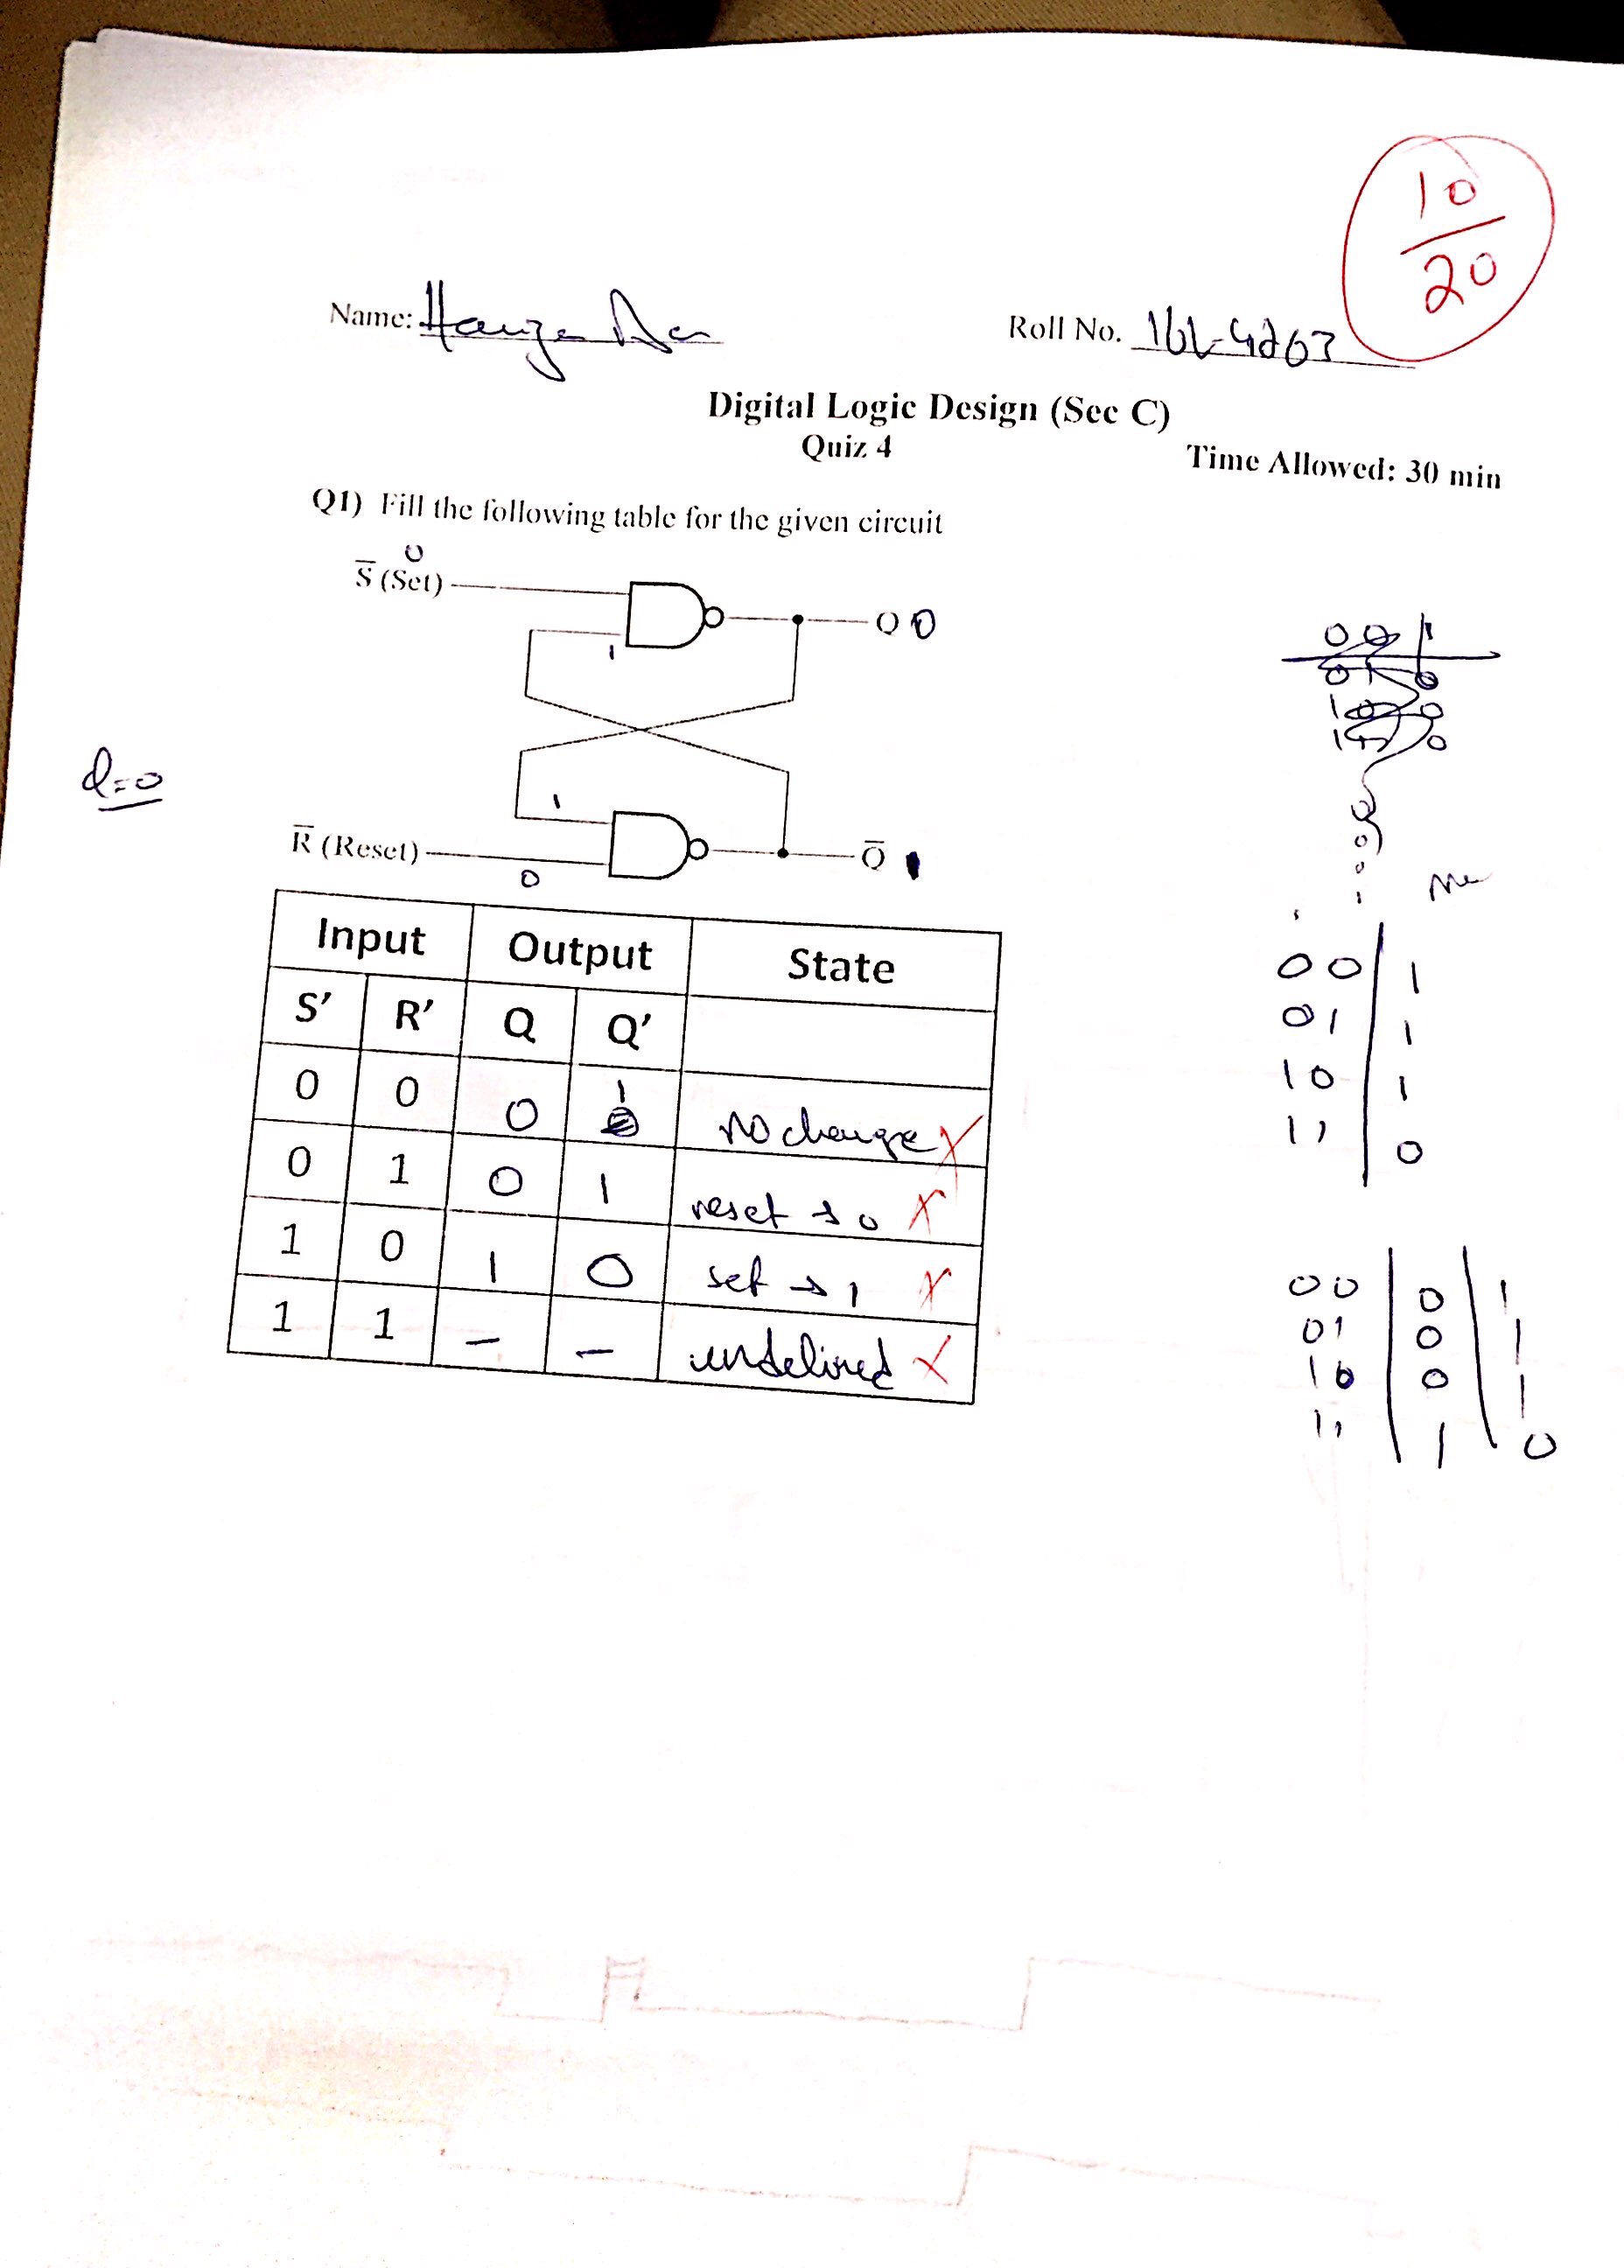 10
20
Name:
Roll No. 16L-4263
Digital Logic Design (Sec C)
Quiz 4
Time Allowed: 30 min
Q1) Fill the following table for the given circuit
0
S̅ (Set)
Q 0
1
Q=0
1
R̅ (Reset)
0
Q̅ 1
Input Output State
S' R' Q Q'
0 0 0 1 No change X
0 1 0 1 reset → 0 X
1 0 1 0 set → 1 X
1 1 – – undefined X
0 0 1
0 1 0
1 0 0
1 1 0
0 0 1
0 1 1
1 0 1
1 1 0
0 0 0 1
0 1 0 1
1 0 0 1
1 1 1 0